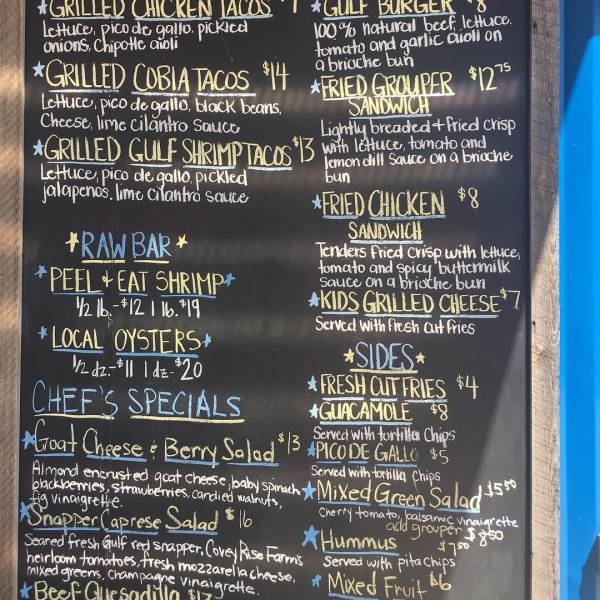 GRILLED CHICKEN TACOS
lettuce, pico de gallo, pickled
onions, Chipotle aioli
GRILLED COBIA TACOS $14
Lettuce, pico de gallo, black beans,
Cheese, lime cilantro sauce
GRILLED GULF SHRIMP TACOS $13
Lettuce, pico de gallo, pickled
jalapenos, lime cilantro sauce
RAW BAR
PEEL + EAT SHRIMP
1/2 lb. - $12 1 lb. $19
LOCAL OYSTERS
1/2 dz. - $11 1 dz - $20
CHEF'S SPECIALS
Goat Cheese & Berry Salad $13
Almond encrusted goat cheese, baby spinach,
blackberries, strawberries, candied walnuts,
fig vinaigrette.
Snapper Caprese Salad $16
Seared fresh Gulf red snapper, Covey Rise Farm's
heirloom tomatoes, fresh mozzarella cheese,
mixed greens, champagne vinaigrette.
Beef Quesadilla
GULF BURGER $8
100% natural beef, lettuce,
tomato and garlic aioli on
a brioche bun
FRIED GROUPER $12.75
SANDWICH
Lightly breaded + fried crisp
with lettuce, tomato and
lemon dill sauce on a brioche
bun
FRIED CHICKEN $8
SANDWICH
Tenders fried crisp with lettuce,
tomato and spicy buttermilk
sauce on a brioche bun
KIDS GRILLED CHEESE $7
Served with fresh cut fries
SIDES
FRESH CUT FRIES $4
GUACAMOLE $8
Served with tortilla chips
PICO DE GALLO $5
Served with tortilla chips
Mixed Green Salad $5.50
cherry tomato, balsamic vinaigrette
add grouper $8.50
Hummus $7.50
Served with pita chips
Mixed Fruit $6